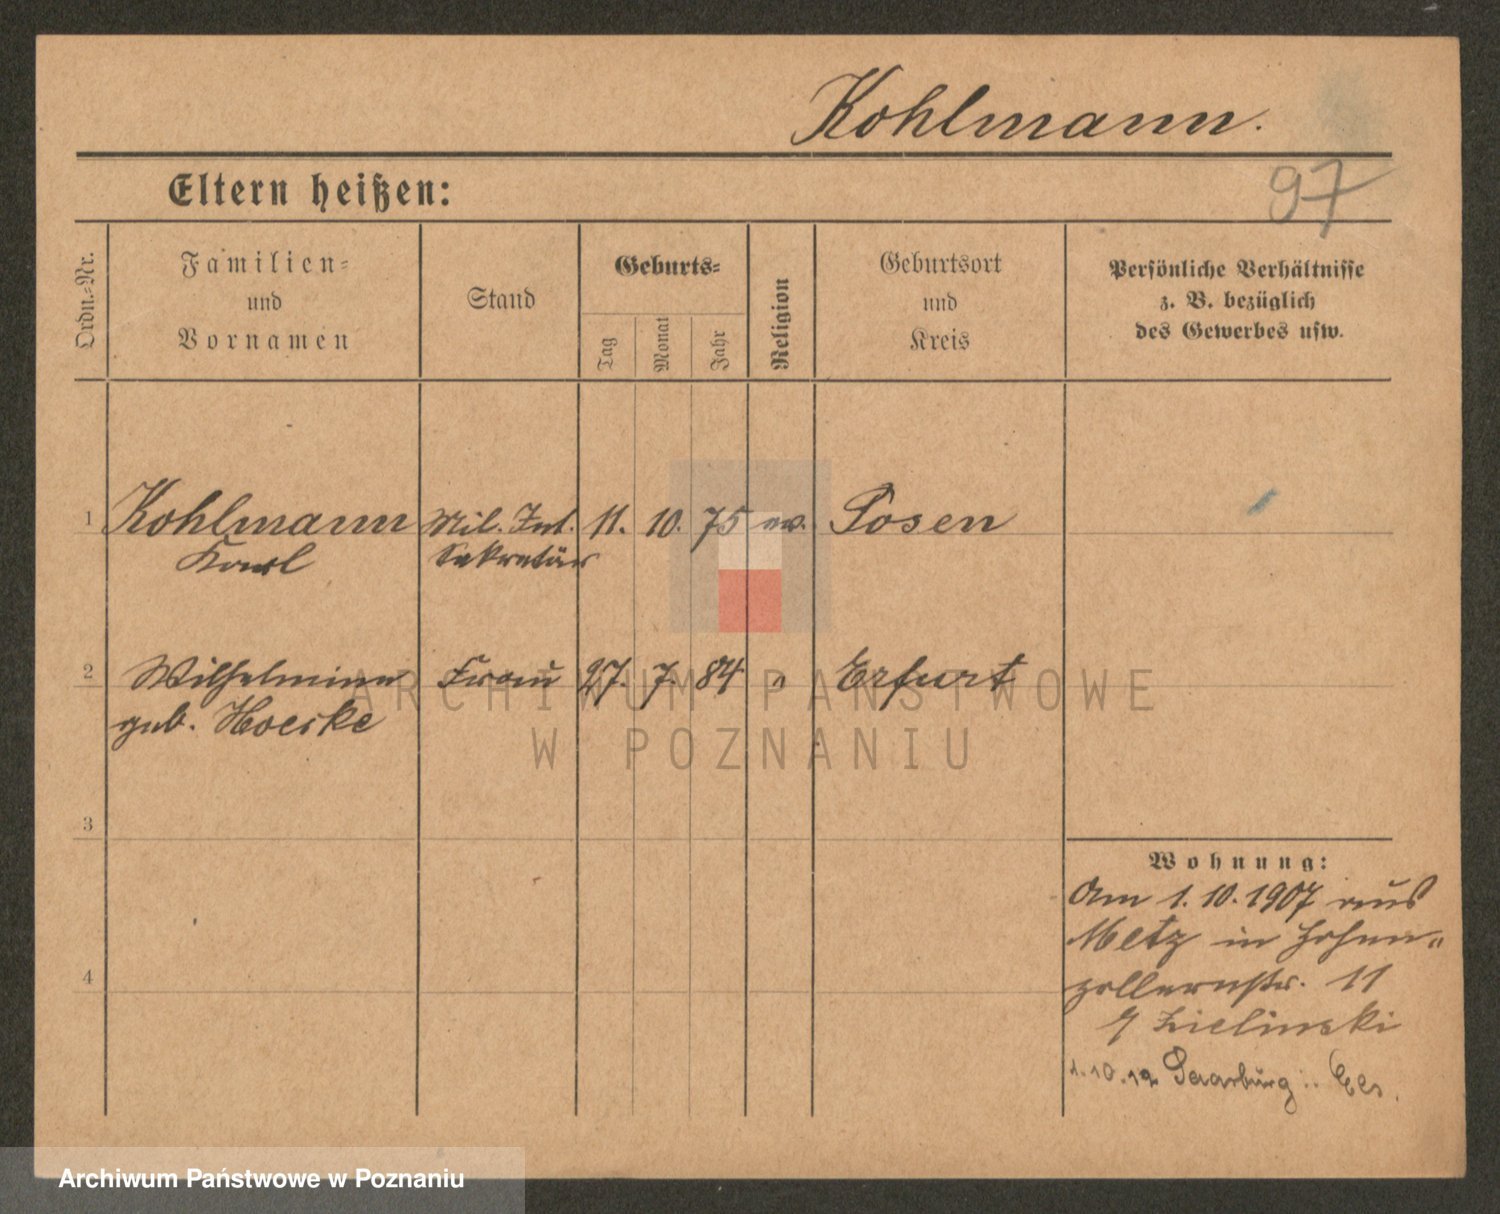 Kohlmann.
97
Eltern heißen:
Ordn.-Nr.
Familien-
und
Vornamen
Stand
Geburts-
Tag
Monat
Jahr
Religion
Geburtsort
und
Kreis
Persönliche Verhältnisse
z. B. bezüglich
des Gewerbes usw.
1 Kohlmann Mil. Int. 11. 10. 75 ev. Posen
Karl Sekretär
2 Wilhelmine Frau 27. 7. 84 " Erfurt
geb. Hoeske
ARCHIWUM PAŃSTWOWE
W POZNANIU
3
4
Wohnung:
Am 1. 10. 1907 aus
Metz in Hohen-
zollernstr. 11
Zielinski
1.10.12 Saarburg i. Els.
Archiwum Państwowe w Poznaniu